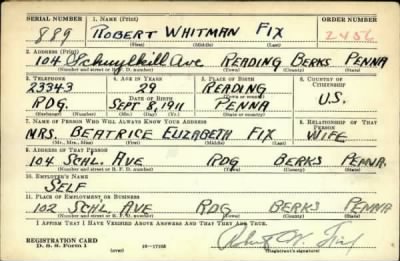 SERIAL NUMBER 1. NAME (Print) ORDER NUMBER
889 ROBERT WHITMAN FIX 2456
(First) (Middle) (Last)
2. ADDRESS (Print)
104 Schuylkill Ave READING BERKS PENNA
(Number and street or R. F. D. number) (Town) (County) (State)
3. TELEPHONE 4. AGE IN YEARS 5. PLACE OF BIRTH 6. COUNTRY OF CITIZENSHIP
23343 29 READING
DATE OF BIRTH (Town or county)
RDG. SEPT 8, 1911 PENNA U.S.
(Exchange) (Number) (Mo.) (Day) (Yr.) (State or country)
7. NAME OF PERSON WHO WILL ALWAYS KNOW YOUR ADDRESS 8. RELATIONSHIP OF THAT PERSON
MRS. BEATRICE ELIZABETH FIX WIFE
(Mr., Mrs., Miss) (First) (Middle) (Last)
9. ADDRESS OF THAT PERSON
104 SCHL. AVE RDG BERKS PENNA.
(Number and street or R. F. D. number) (Town) (County) (State)
10. EMPLOYER'S NAME
SELF
11. PLACE OF EMPLOYMENT OR BUSINESS
102 SCHL. AVE RDG BERKS PENNA
(Number and street or R. F. D. number) (Town) (County) (State)
I AFFIRM THAT I HAVE VERIFIED ABOVE ANSWERS AND THAT THEY ARE TRUE.
Robert W. Fix
REGISTRATION CARD
D. S. S. Form 1 (over) 16-17105 (Registrant's signature)